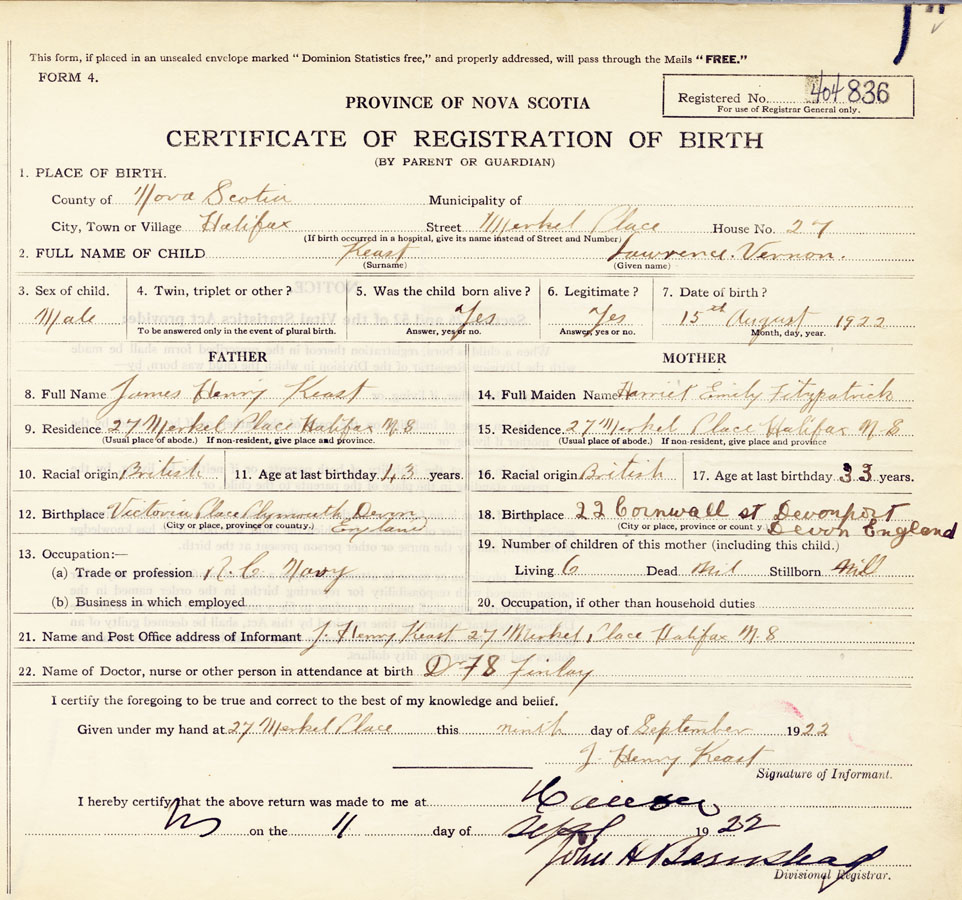 This form, if placed in an unsealed envelope marked "Dominion Statistics free," and properly addressed, will pass through the Mails "FREE."
FORM 4.
Registered No. 404836
For use of Registrar General only.
PROVINCE OF NOVA SCOTIA
CERTIFICATE OF REGISTRATION OF BIRTH
(BY PARENT OR GUARDIAN)
1. PLACE OF BIRTH.
County of Nova Scotia Municipality of
City, Town or Village Halifax Street Merkel Place House No. 27
(If birth occurred in a hospital, give its name instead of Street and Number)
2. FULL NAME OF CHILD Keast Lawrence. Vernon.
(Surname) (Given name)
3. Sex of child. 4. Twin, triplet or other? 5. Was the child born alive? 6. Legitimate? 7. Date of birth?
Male Yes Yes 15th August 1922
To be answered only in the event of plural birth. Answer, yes or no. Answer, yes or no. Month, day, year.
FATHER MOTHER
8. Full Name James Henry Keast 14. Full Maiden Name Harriet Emily Fitzpatrick
9. Residence 27 Merkel Place Halifax N.S 15. Residence 27 Merkel Place Halifax N.S
(Usual place of abode.) If non-resident, give place and province. (Usual place of abode.) If non-resident, give place and province
10. Racial origin British 11. Age at last birthday 43 years. 16. Racial origin British 17. Age at last birthday 33 years.
12. Birthplace Victoria Place Plymouth Devon England 18. Birthplace 22 Cornwall st Devonport Devon England
(City or place, province or country.) (City or place, province or count y.)
13. Occupation:— 19. Number of children of this mother (including this child.)
(a) Trade or profession R. C. Navy Living 6 Dead Nil Stillborn Nill
(b) Business in which employed 20. Occupation, if other than household duties
21. Name and Post Office address of Informant J. Henry Keast 27 Merkel Place Halifax N.S
22. Name of Doctor, nurse or other person in attendance at birth Dr Finlay
I certify the foregoing to be true and correct to the best of my knowledge and belief.
Given under my hand at 27 Merkel Place this ninth day of September 1922
J. Henry Keast
Signature of Informant.
I hereby certify that the above return was made to me at Halifax
NS on the 11 day of Sept 1922
John H Barnstead
Divisional Registrar.